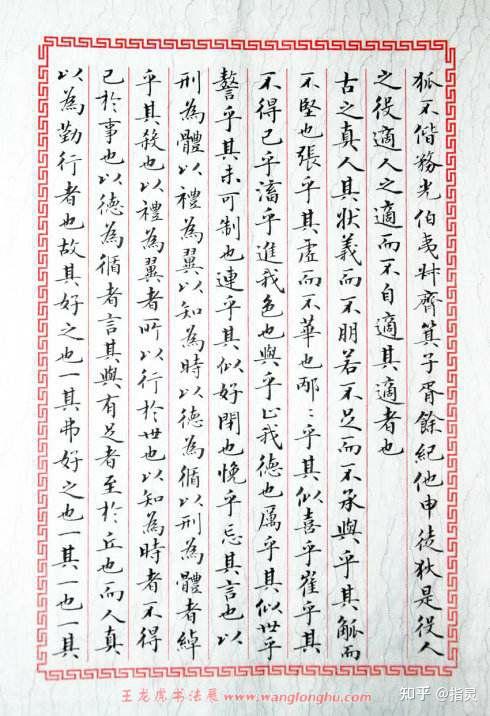 狐不偕務光伯夷叔齊箕子胥餘紀他申徒狄是役人
之役適人之適而不自適其適者也
古之真人其狀義而不朋若不足而不承與乎其觚而
不堅也張乎其虛而不華也邴〻乎其似喜乎崔乎其
不得已乎滀乎進我色也與乎止我德也厲乎其似世乎
謷乎其未可制也連乎其似好閉也悗乎忘其言也以
刑為體以禮為翼以知為時以德為循以刑為體者綽
乎其殺也以禮為翼者所以行於世也以知為時者不得
已於事也以德為循者言其與有足者至於丘也而人真
以為勤行者也故其好之也一其弗好之也一其一也一其
王龙虎书法展 www.wanglonghu.com
知乎 @指灵